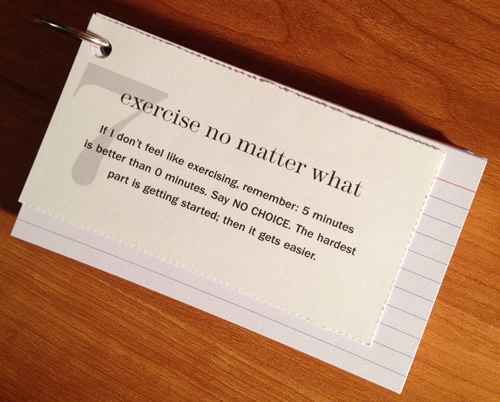 7
exercise no matter what
If I don't feel like exercising, remember: 5 minutes
is better than 0 minutes. Say NO CHOICE. The hardest
part is getting started; then it gets easier.